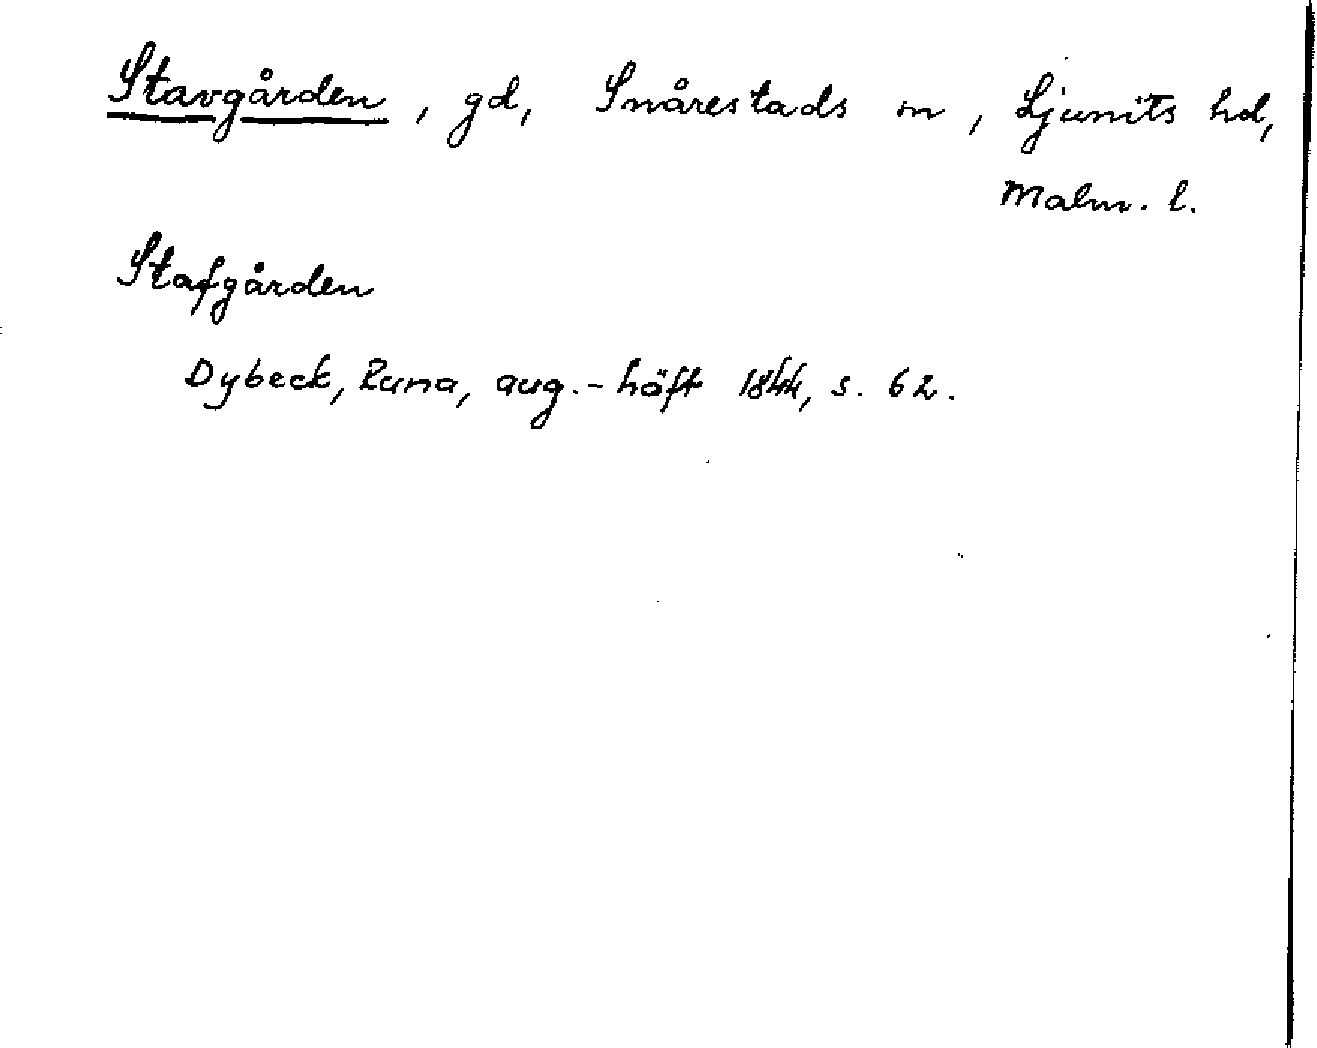 Stavgården, gd, Snårestads sn, Ljunits hd,
Malm. l.
Stafgården
Dybeck, Runa, aug.-häft 1844, s. 62.